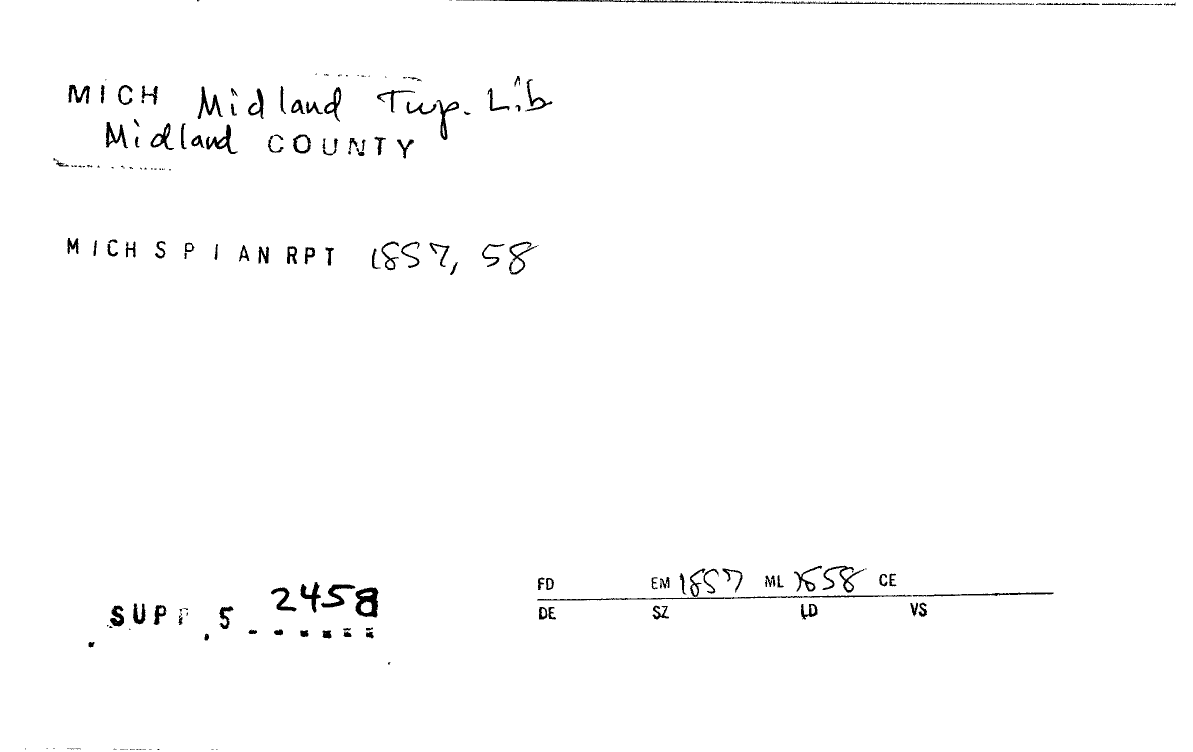 MICH Midland Twp. Lib
Midland COUNTY
MICH S P I AN RPT 1857, 58
SUPP. 5 2458
FD EM 1857 ML 1858 CE
DE SZ LD VS